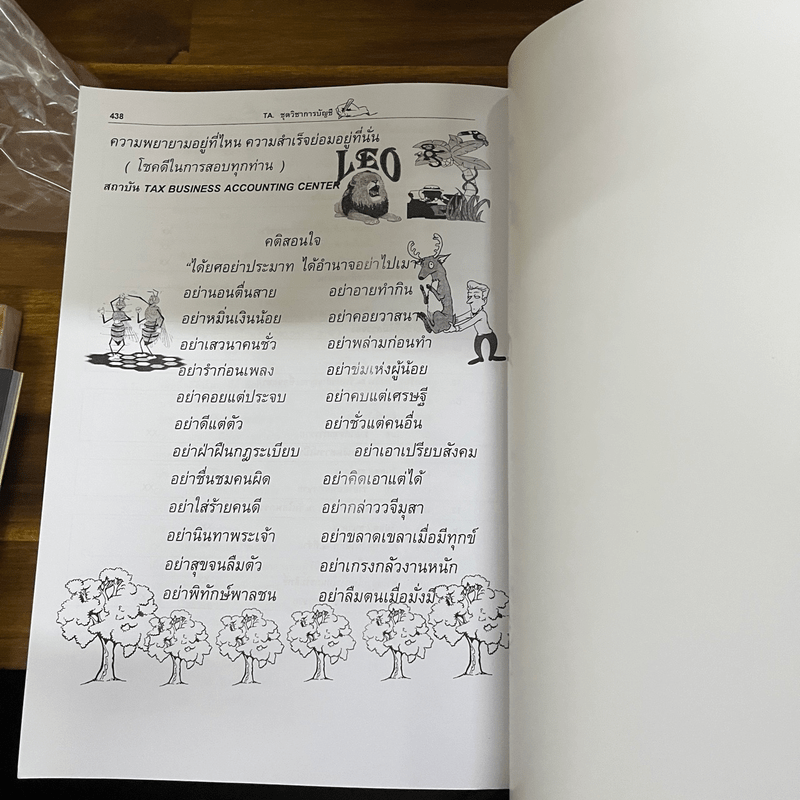 438
TA. ชุดวิชาการบัญชี
ความพยายามอยู่ที่ไหน ความสำเร็จย่อมอยู่ที่นั่น
( โชคดีในการสอบทุกท่าน )
LEO
สถาบัน TAX BUSINESS ACCOUNTING CENTER
คติสอนใจ
"ได้ยศอย่าประมาท ได้อำนาจอย่าไปเมา
อย่านอนตื่นสาย อย่าอายทำกิน
อย่าหมิ่นเงินน้อย อย่าคอยวาสนา
อย่าเสวนาคนชั่ว อย่าพล่ามก่อนทำ
อย่ารำก่อนเพลง อย่าข่มเหงผู้น้อย
อย่าคอยแต่ประจบ อย่าคบแต่เศรษฐี
อย่าดีแต่ตัว อย่าชั่วแต่คนอื่น
อย่าฝ่าฝืนกฎระเบียบ อย่าเอาเปรียบสังคม
อย่าชื่นชมคนผิด อย่าคิดเอาแต่ได้
อย่าใส่ร้ายคนดี อย่ากล่าววจีมุสา
อย่านินทาพระเจ้า อย่าขลาดเขลาเมื่อมีทุกข์
อย่าสุขจนลืมตัว อย่าเกรงกลัวงานหนัก
อย่าพิทักษ์พาลชน อย่าลืมตนเมื่อมั่งมี